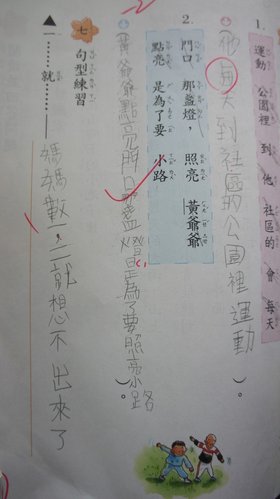 1.
運動 公園裡 到 他 社區的 會 每天
他每天到社區的公園裡運動。
2.
門口 那盞燈， 照亮 黃爺爺
點亮 是為了要 小路
黃爺爺點亮門口那盞燈是為了要照亮小路。
七 句型練習
一……就……
媽媽數一,二就想不出來了